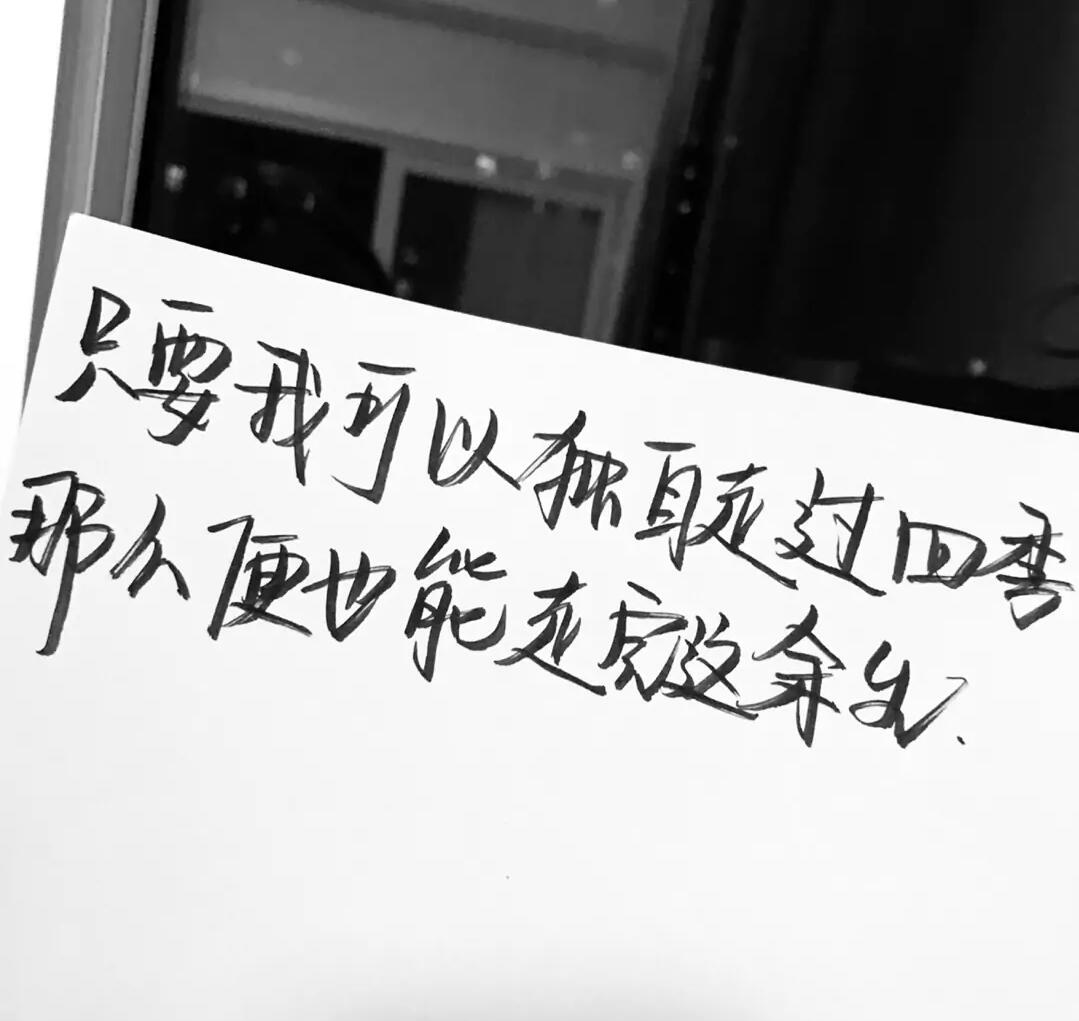 只要我可以独自走过四季
那么便也能走完这余生.